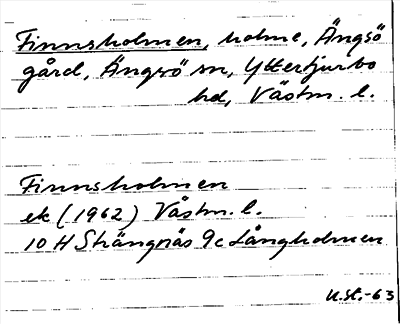 Finnsholmen, holme, Ängsö
gård, Ängsö sn, Yttertjurbo
hd, Västm. l.
Finnsholmen
ek (1962) Västm. l.
10 H Strängnäs 9c Långholmen
U.St.-63